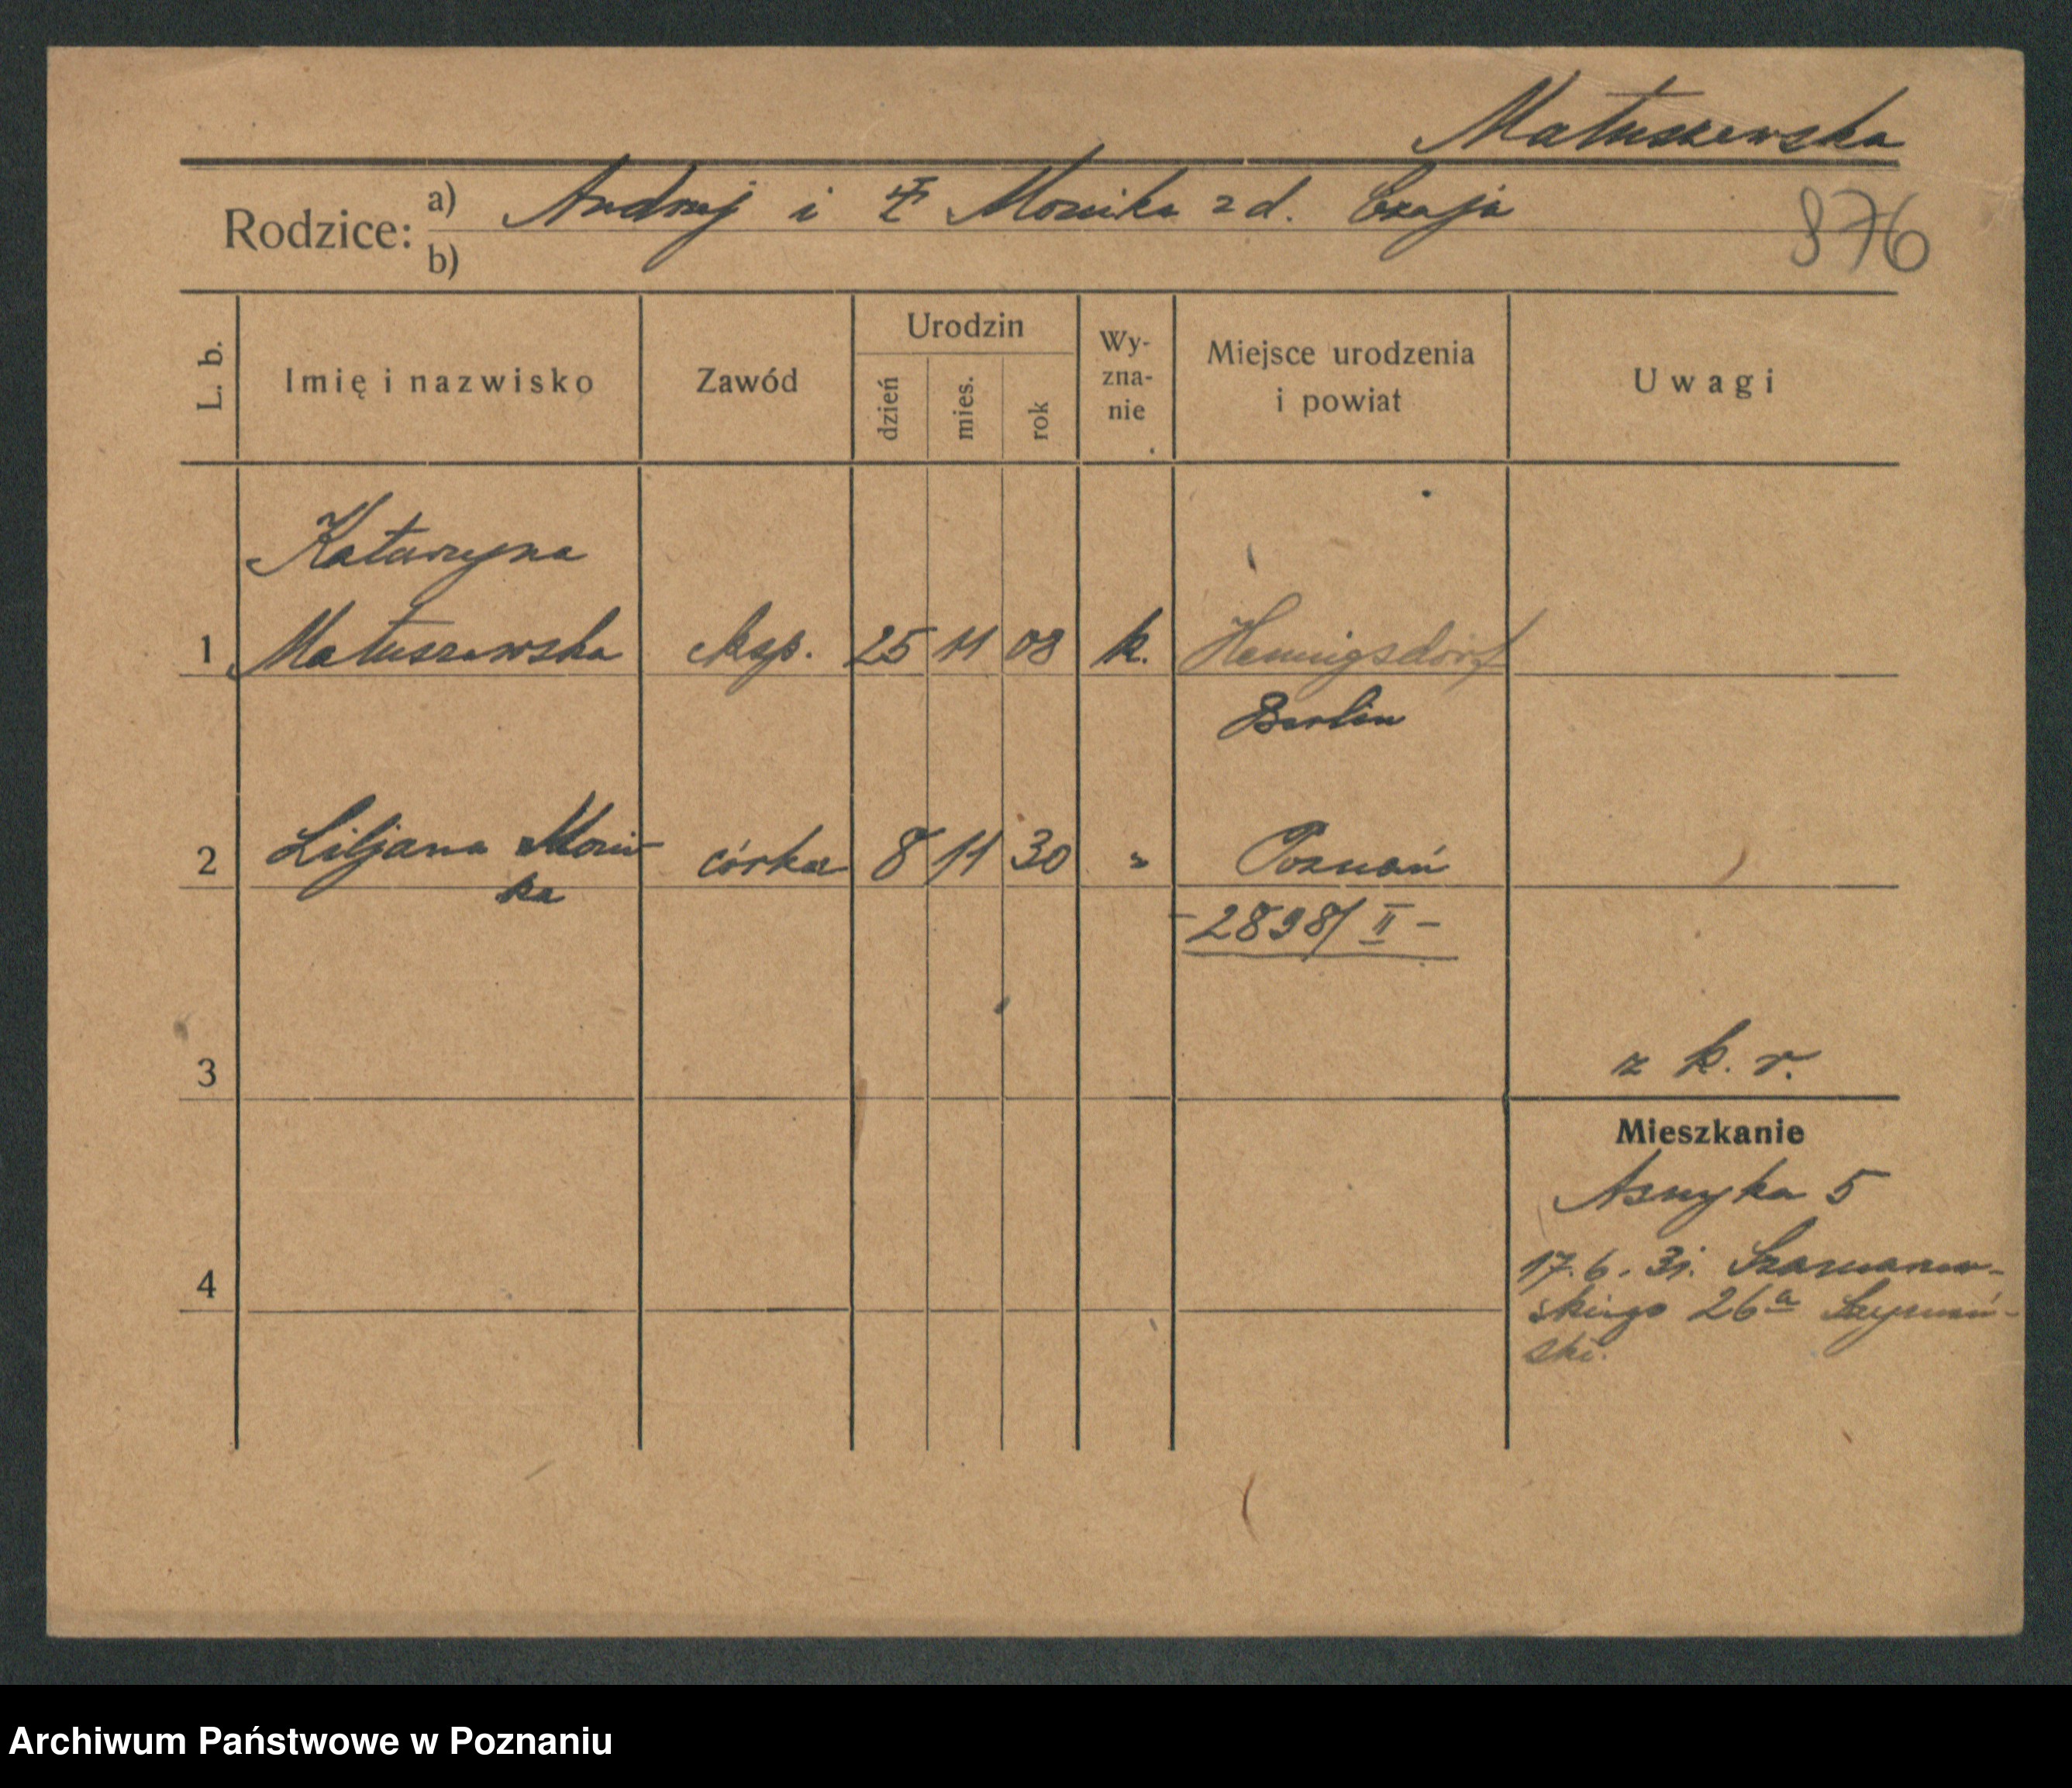 Matuszewska
Rodzice: a) Andrzej i Monika z d. Czaja
b)
876
L. b.
Imię i nazwisko
Zawód
Urodzin
dzień
mies.
rok
Wy-
zna-
nie
Miejsce urodzenia
i powiat
Uwagi
Katarzyna
1 Matuszewska eksp. 25 11 08 k. Hennigsdorf
Berlin
2 Liljana Moni- córka 8 11 30 " Poznań
ka
- 2898/II -
3
z k. r.
Mieszkanie
Asnyka 5
17.6.31. Szamarzew-
4
skiego 26a Szymań-
ski.
Archiwum Państwowe w Poznaniu